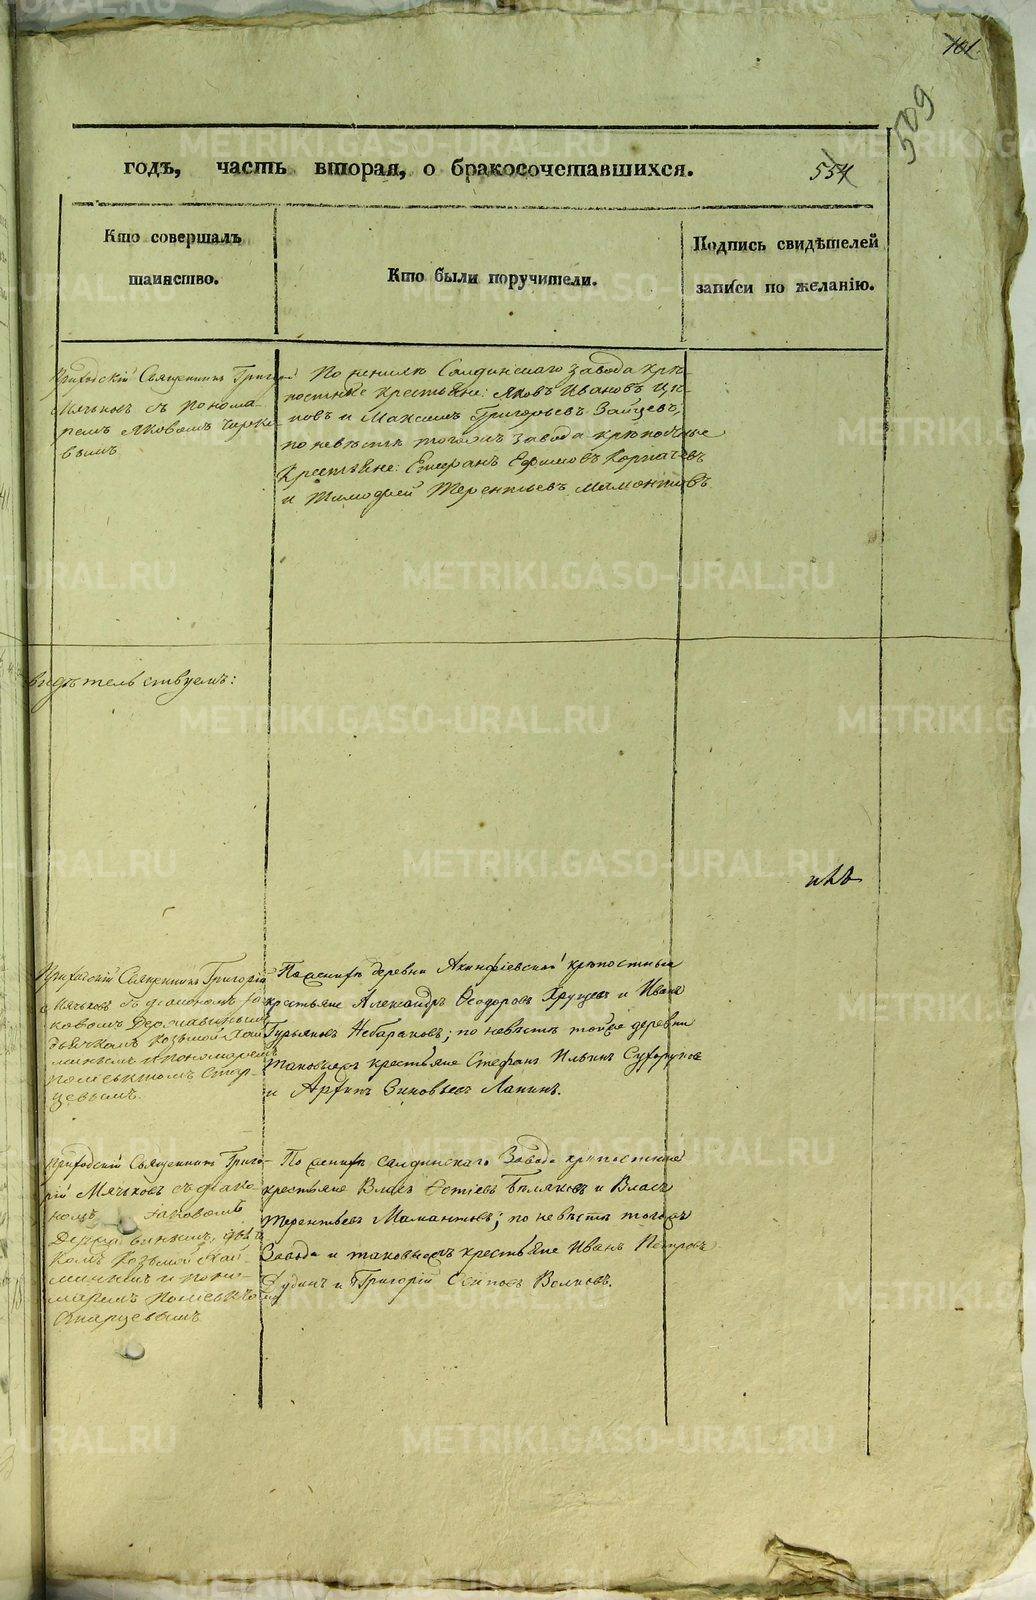 101.
509
годъ, часть вторая, о бракосочетавшихся.
554
Кто совершалъ
таинство.
Кто были поручители.
Подпись свидѣтелей
записи по желанію.
Приходскій Священникъ Григорій
Мячковъ съ понома-
ремъ Яковомъ
вымъ
По женихѣ Салдинскаго завода крѣ
постные крестьяне: Яковъ Ивановъ Ци-
повъ и Максимъ Григорьевъ Зайцевъ,
по невѣстѣ тогожъ завода крѣпостные
крестьяне: Ефимовъ Корпачевъ
и Тимофей Терентьевъ Мамонтовъ
видѣтельствуемъ:
Приходскій Священникъ Григорій
Мячковъ съ діакономъ Іа-
ковомъ Державинымъ
дьячкомъ Козьмой Хай-
минымъ и пономаремъ
Стар-
цевымъ.
По женихѣ деревни Акинфіевской крѣпостные
крестьяне Александръ Ѳеодоровъ Хрущевъ и Иванъ
Гурьяновъ Небараковъ; по невѣстѣ тойже деревни
таковыежъ крестьяне Стефанъ Ильинъ
и Зиновьевъ Лапинъ.
Приходскій Священникъ Григо-
рій Мячковъ съ діако-
номъ Іаковомъ
Державинымъ, дьяч-
комъ Козьмой Хай-
минымъ и поно-
маремъ
Старцевымъ
По женихѣ Салдинскаго Завода крѣпостные
крестьяне Власъ Бѣляковъ и Власъ
Терентьевъ Мамантовъ; по невѣстѣ тогожъ
Завода и таковыежъ крестьяне Иванъ Петровъ
Дудинъ и Григорій Осиповъ Волковъ.
METRIKI.GASO-URAL.RU